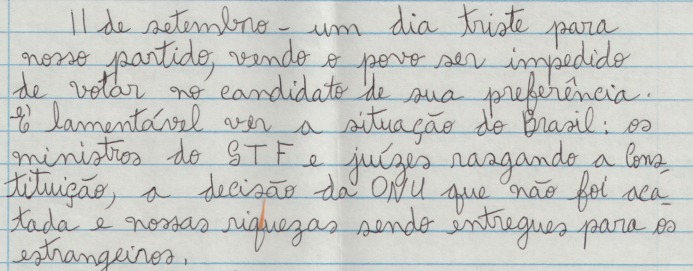 11 de setembro - um dia triste para
nosso partido, vendo o povo ser impedido
de votar no candidato de sua preferência.
É lamentável ver a situação do Brasil: os
ministros do STF e juízes rasgando a Cons_
tituição, a decisão da ONU que não foi aca_
tada e nossas riquezas sendo entregues para os
estrangeiros.